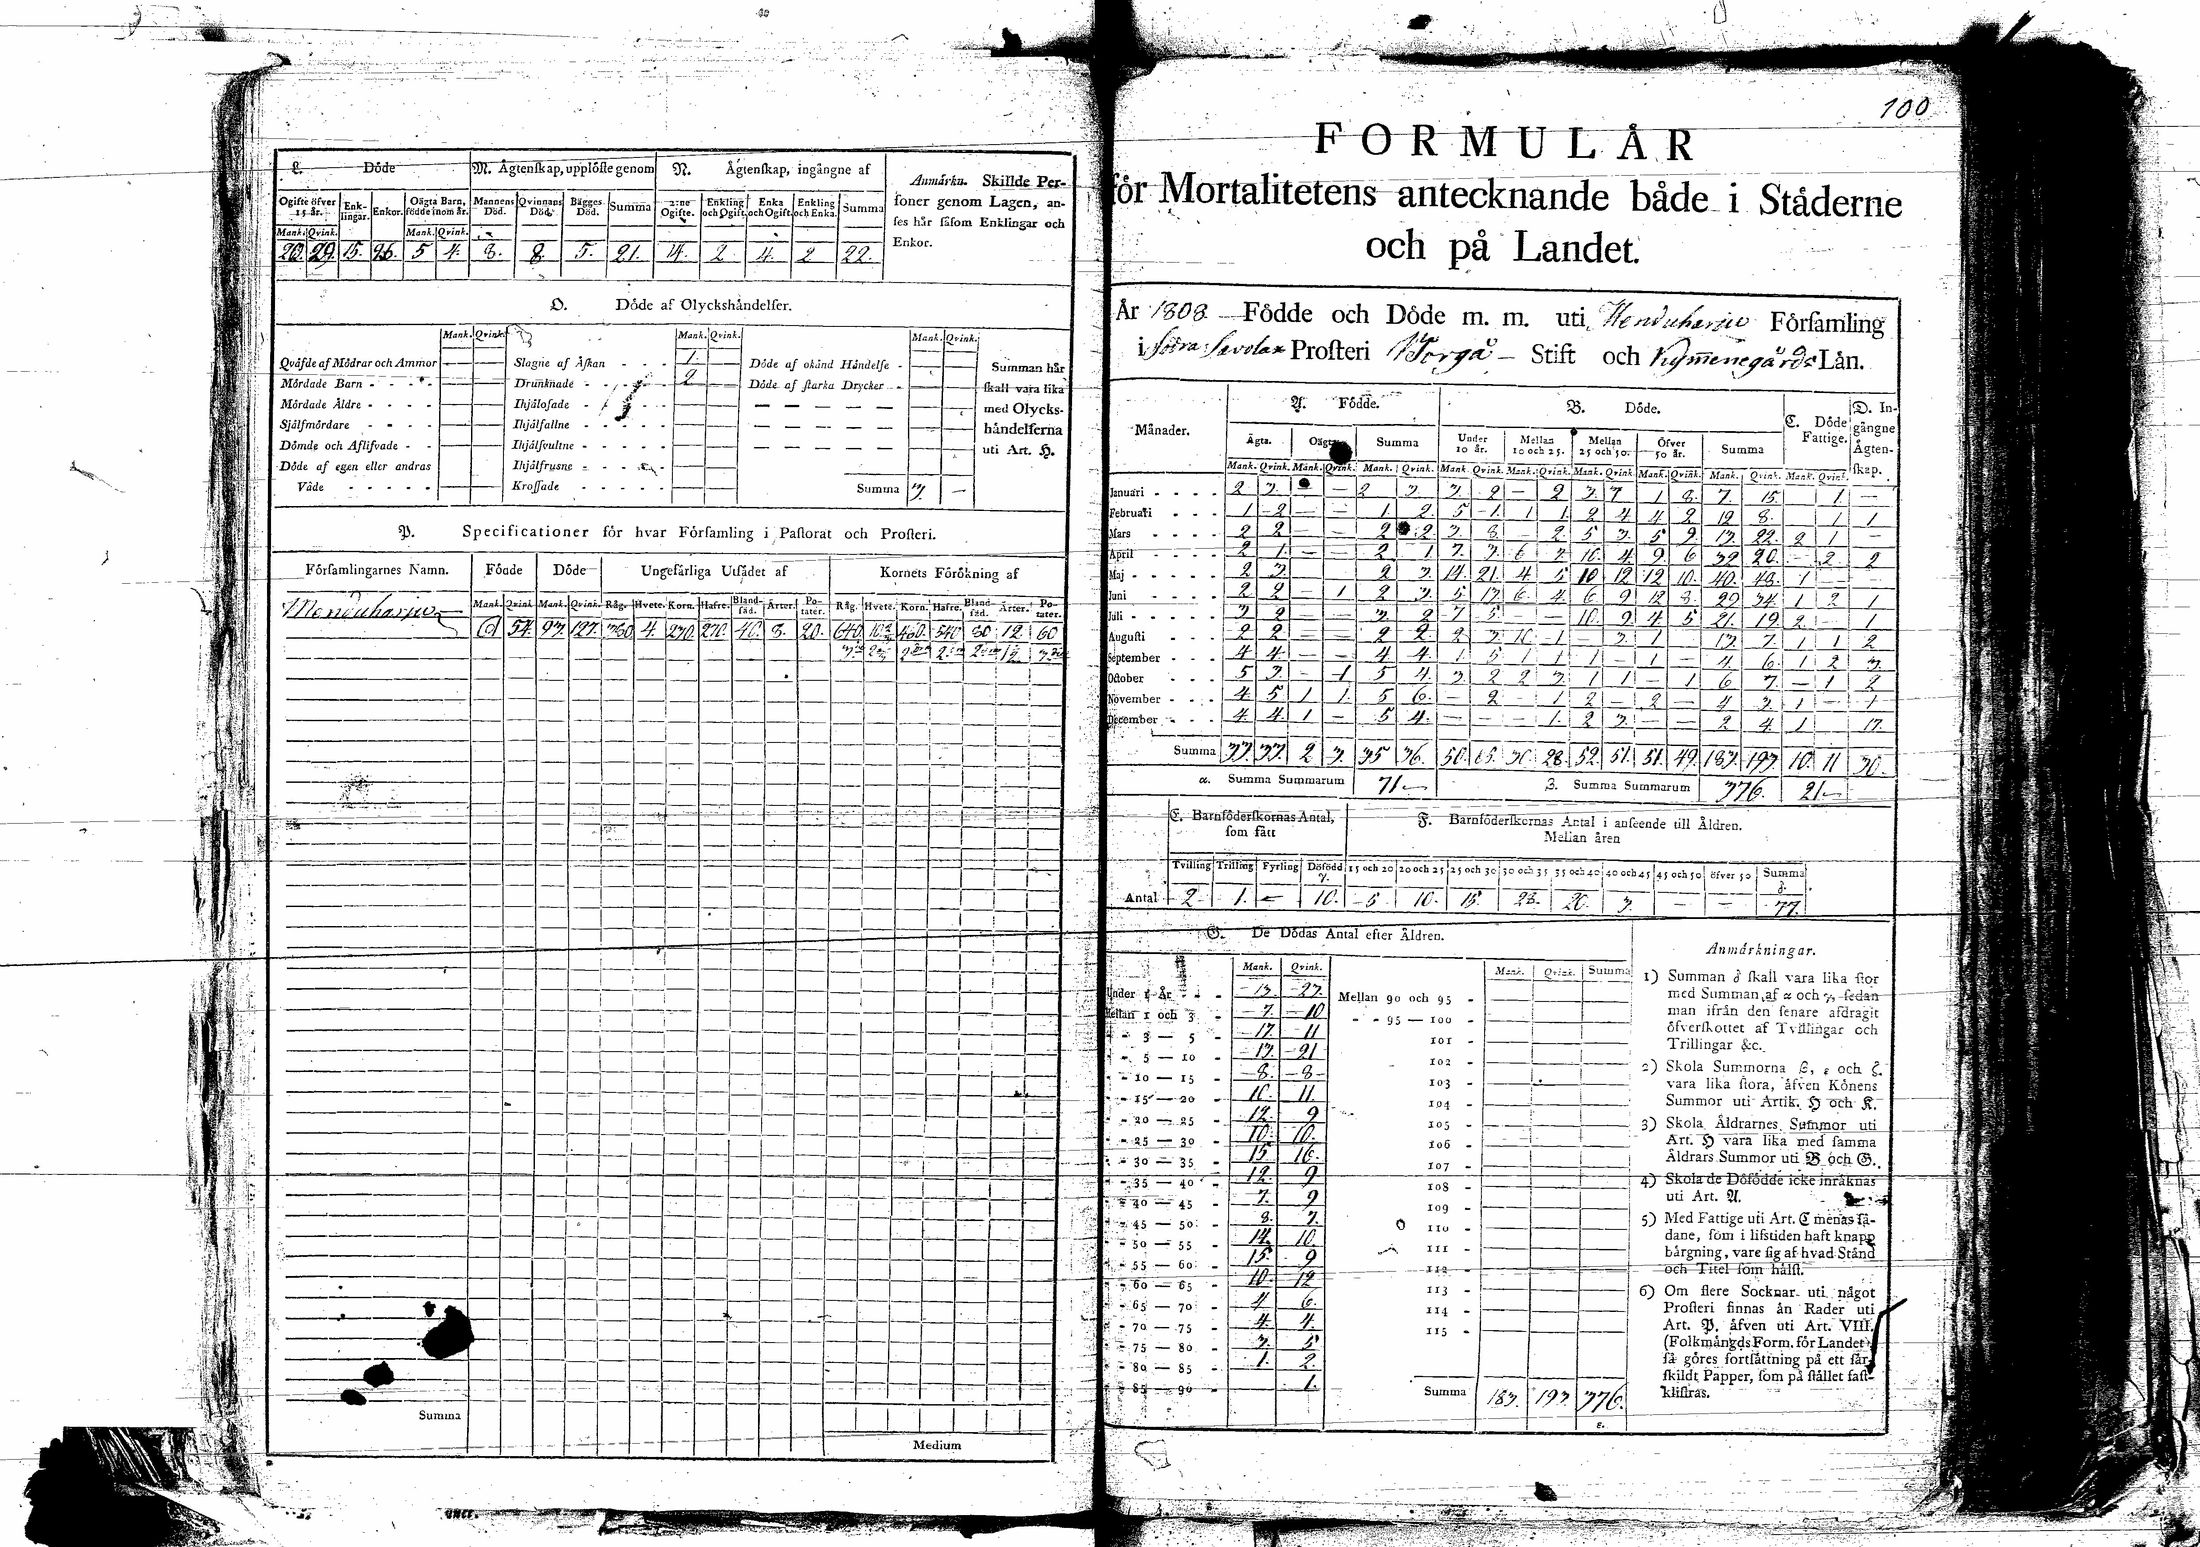 L. Döde
M. Ägtenskap, upplöste genom
N. Ägtenskap, ingångne af
Anmärkn. Skillde Personer genom Lagen, anses här såsom Enklingar och Enkor.
Ogifte öfver 15 år. Enklingar. Enkor. Oägta Barn, födde inom år. Mannens Död. Qvinnans Död. Bägges Död. Summa 2:ne Ogifte. Enkling och Ogift. Enka och Ogift. Enkling och Enka. Summa
Mank. Qvink. Mank. Qvink.
20. 29. 15. 26. 5 4. 8. 8. 5. 21. 14. 2 4. 2 22.
O. Döde af Olyckshändelser.
Mank. Qvink. Mank. Qvink. Mank. Qvink.
Qväfde af Mödrar och Ammor — — Slagne af Åskan 1. — Döde af okänd Händelse — —
Mördade Barn — — Drunknade 2 — Döde af starka Drycker — —
Mördade Äldre Ihjälosade
Själfmördare Ihjälfallne
Dömde och Aflifvade Ihjälsvultne
Döde af egen eller andras Ihjälfrusne
Våde Krossade Summa 3. —
Summan här
skall vara lika
med Olycks-
händelserna
uti Art. H.
P. Specificationer för hvar Församling i Pastorat och Prosteri.
Församlingarnes Namn. Födde Döde Ungefärliga Utsädet af Kornets Förökning af
Mank. Qvink. Mank. Qvink. Råg. Hvete. Korn. Hafre. Blandsäd. Ärter. Potäter. Råg. Hvete. Korn. Hafre. Blandsäd. Ärter. Potäter.
Menduharju 54. 93. 127. 4. 270. 270. 40. 8. 20. 640. 540 80 12. 60
Summa
Medium
100
FORMULÄR
för Mortalitetens antecknande både i Städerne
och på Landet.
År 1808 Födde och Döde m. m. uti Menduharju Församling
i Södra Savolax Prosteri Borgå Stift och Kymmenegårds Län.
Månader. A. Födde. B. Döde. C. Döde Fattige. D. Ingångne Ägtenskap.
Ägta. Oägta Summa Under 10 år. Mellan 10 och 25. Mellan 25 och 50. Öfver 50 år. Summa
Mank. Qvink. Mank. Qvink. Mank. Qvink. Mank. Qvink. Mank. Qvink. Mank. Qvink. Mank. Qvink. Mank. Qvink. Mank. Qvink.
Januari 2 3. — — 2 3. 3. 2 — 2 3. 1 8. 7. 15. 1. —
Februari 1 2 — — 1 2. 5 1. 1 1. 2 4 4 2 12 8. 1 1
Mars 2 2 — — 2 2 3. 8. — 2. 5 3. 5 9. 13. 22. 2 1 —
April 2 1. — — 2 1. 7. 7. 6 3. 10. 4. 9 6 32 20. — 2. 2
Maj 2 3. 2 3. 14. 21. 4 5 10 12 12 10. 40. 48. 1 —
Juni 2 2 — 1 2 3. 5 13. 6. 4. 6 9 12 8. 29 34. 1 2 1
Juli 3. 2 — — 3. 2 7 5 — — 10. 9 4 5 21. 19 2 — 1
Augusti 2 2 — — 2 2. 2 3. 10. 1 — 3. 1 — 13. 7. 1 1 2
September 4 4 — — 4 4. 1 5 1 1 1 — 1 — 4. 6. 1 2 3.
October 5 3. — 1 5 4. 3. 2 2 3. 1 1 — 1 6 7. — 1 2
November 4. 5 1 1. 5 6. — 2 — 1 2 — 2 — 4 3. 1 — 1
December 4. 4. 1 — 5 4. — — — 1. 2 3. — — 2 4. 1 17.
Summa 33. 33. 2 3. 35 36. 50. 65. 30. 28. 52. 51. 51. 49. 183. 193. 10. 11 30.
α. Summa Summarum 71 β. Summa Summarum 376. 21
E. Barnföderskornas Antal, som fått
F. Barnföderskornas Antal i anseende till Åldren.
Mellan åren
Tvilling Trilling Fyrling Dödfödd γ. 15 och 20 20 och 25 25 och 30 30 och 35 35 och 40 40 och 45 45 och 50 öfver 50 Summa δ.
Antal 2. 1. — 10. 5 10. 15. 23. 20. 3. — — 77.
G. De Dödas Antal efter Åldren.
Mank. Qvink. Mank. Qvink. Summa
Under 1 År 13. 27.
Mellan 1 och 3 7. 10
3 — 5 17. 11
5 — 10 13. 21
10 — 15 8. 8
15 — 20 10. 11.
20 — 25 12. 9
25 — 30 10. 10.
30 — 35 15. 16.
35 — 40 12. 9
40 — 45 7. 9
45 — 50 8. 7.
50 — 55 14. 10.
55 — 60 15. 9
60 — 65 10. 12
65 — 70 4 6.
70 — 75 4. 4.
75 — 80 3. 5
80 — 85 1. 2.
85 — 90 1.
Mellan 90 och 95
95 — 100
101
102
103
104
105
106
107
108
109
110
111
112
113
114
115
Summa 183. 193. 376.
ε.
Anmärkningar.
1) Summan δ skall vara lika stor
med Summan af α och γ, sedan
man ifrån den senare afdragit
öfverskottet af Tvillingar och
Trillingar &c.
2) Skola Summorna β, ε och ζ
vara lika stora, äfven Könens
Summor uti Artik. H och K.
3) Skola Åldrarnes Summor uti
Art. H vara lika med samma
Åldrars Summor uti B och G.
4) Skola de Dödfödde icke inräknas
uti Art. A.
5) Med Fattige uti Art. C menas så-
dane, som i lifstiden haft knapp
bärgning, vare sig af hvad Stånd
och Titel som hälst.
6) Om flere Socknar uti något
Prosteri finnas än Rader uti
Art. P. äfven uti Art. VIII.
(Folkmängds Form. för Landet)
så göres fortsättning på ett sär-
skildt Papper, som på stället fast-
klistras.